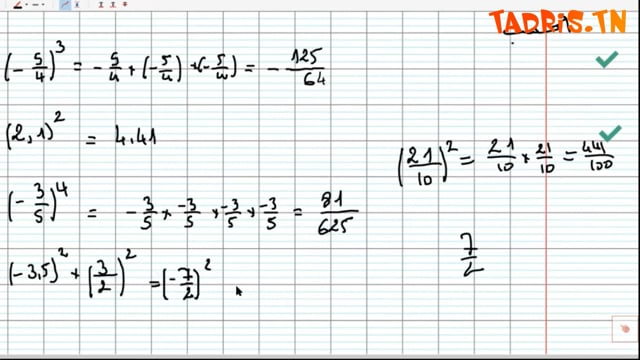 TADRIS.TN
(-5/4)³ = -5/4 × (-5/4) × (-5/4) = -125/64
(2,1)² = 4,41
(21/10)² = 21/10 × 21/10 = 441/100
(-3/5)⁴ = -3/5 × -3/5 × -3/5 × -3/5 = 81/625
7/2
(-3,5)² × (3/2)² = (-7/2)²